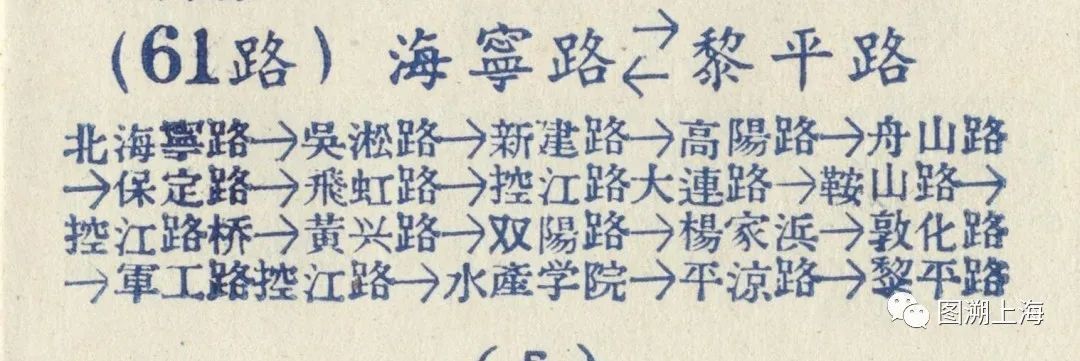 (61路) 海寧路⇄黎平路
北海寧路→吳淞路→新建路→高陽路→舟山路
→保定路→飛虹路→控江路大連路→鞍山路→
控江路桥→黄兴路→双陽路→楊家浜→敦化路
→軍工路控江路→水產学院→平涼路→黎平路
图溯上海